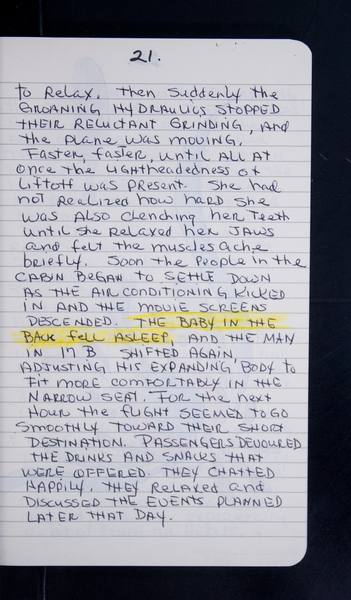 21.
to Relax. Then suddenly the
GROANING HYDRAULICS STOPPED
THEIR RELUCTANT GRINDING, AND
the plane was moving.
Faster, faster, until ALL AT
once the LIGHTheadedness of
Liftoff was present. She had
not Realized how hard she
was Also clenching her teeth
until she relaxed her JAWS
and felt the muscles Ache
briefly. Soon the people in the
CABIN BEGAN to SETTLE DOWN
AS THE AIR CONDITIONING KICKED
IN AND the MOVIE SCREENS
DESCENDED. THE BABY IN THE
BACK fell ASLEEP, AND THE MAN
IN 17 B SHIFTED AGAIN,
ADJUSTING HIS EXPANDING BODY to
FIT MORE COMFORTABLY IN THE
NARROW SEAT. FOR the next
Hour the flight SEEMED TO GO
SMOOTHLY TOWARD THEIR SHORT
DESTINATION. PASSENGERS DEVOURED
THE DRINKS AND SNACKS THAT
WERE OFFERED. THEY CHATTED
HAPPILY. THEY Relaxed and
DISCUSSED THE EVENTS PLANNED
LATER THAT DAY.